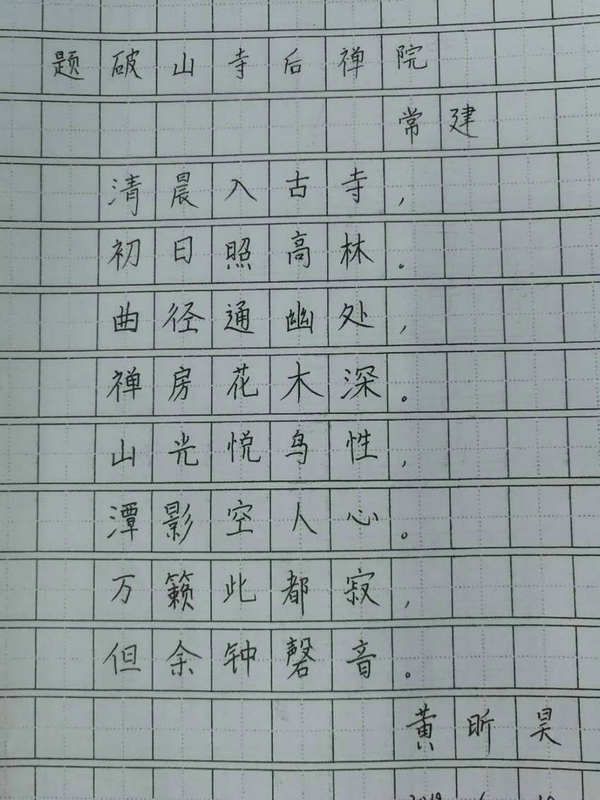 题破山寺后禅院
常建
清晨入古寺，
初日照高林。
曲径通幽处，
禅房花木深。
山光悦鸟性，
潭影空人心。
万籁此都寂，
但余钟磬音。
黄昕昊